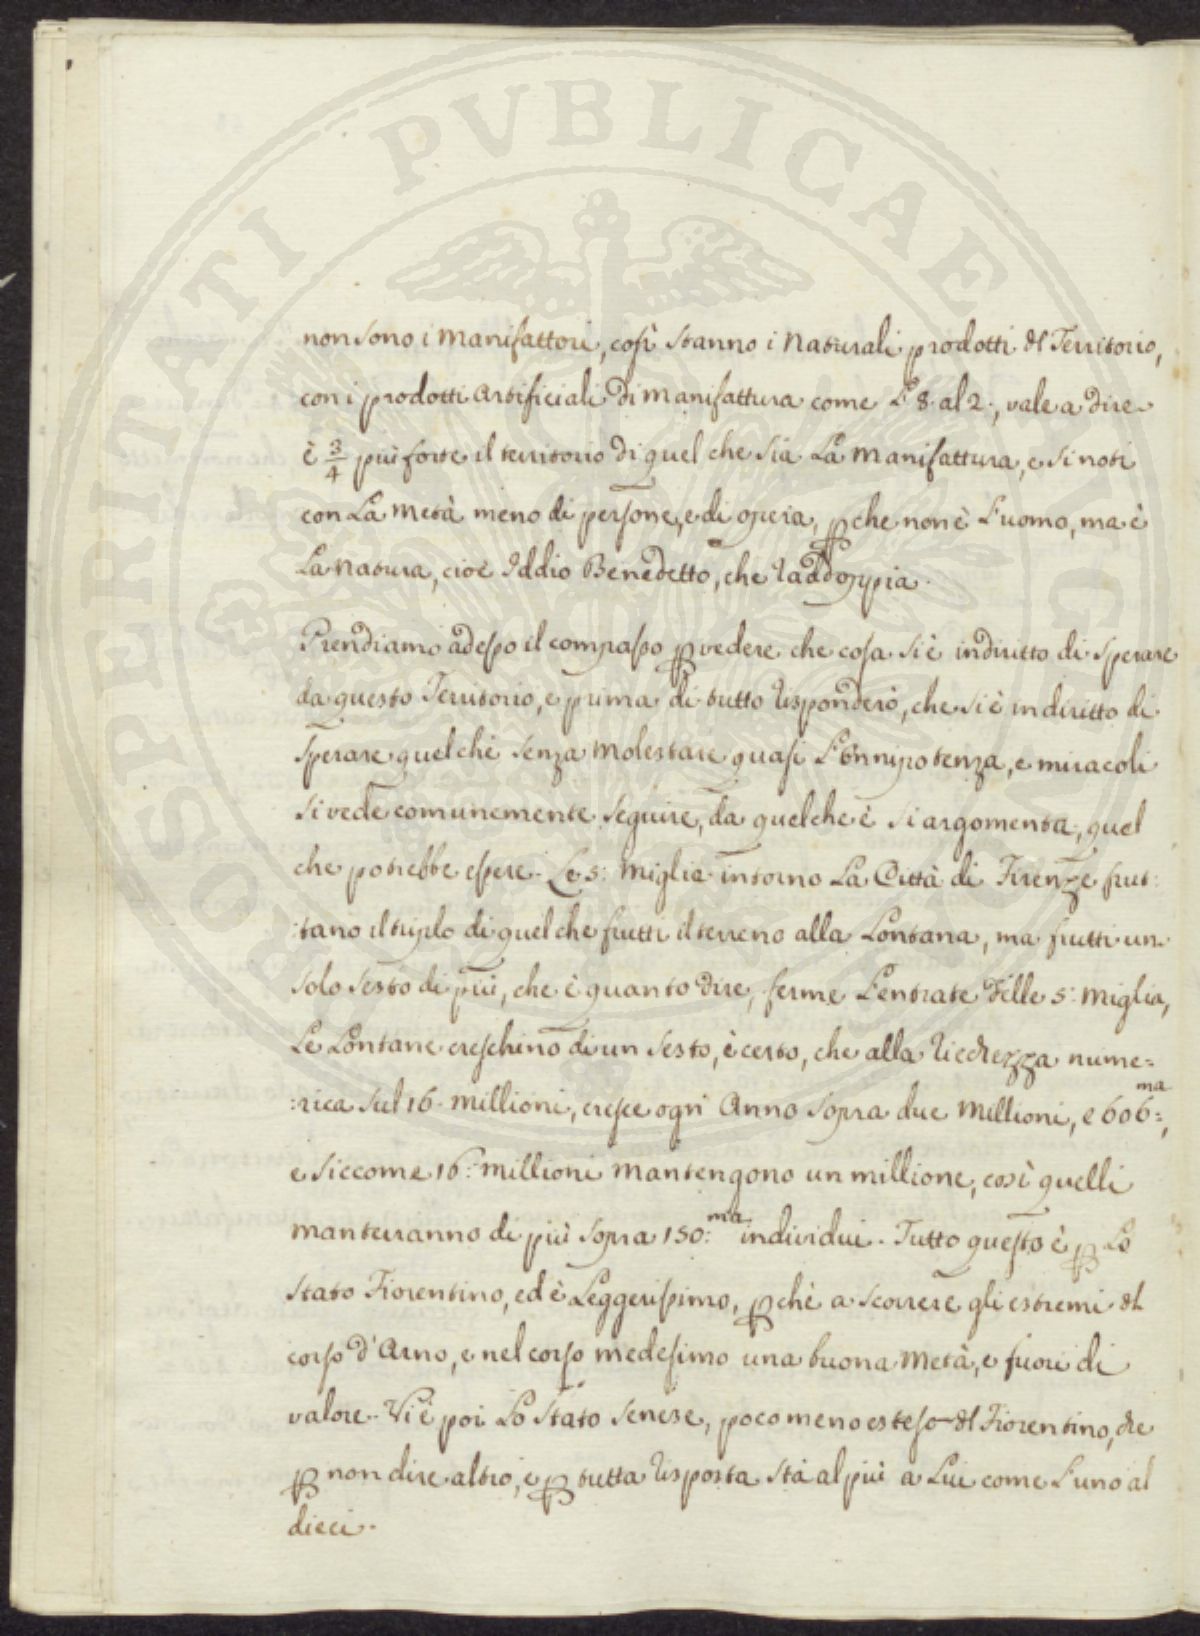 PROSPERITATI PVBLICAE AVGENDAE
non sono i Manifattori, così stanno i Naturali prodotti dl Territorio,
con i prodotti Artificiali di Manifattura come L'8. al 2., vale a dire
è 3/4 più forte il territorio di quel che sia La Manifattura, e si noti
con La Metà meno di persone, e di opera, p che non è L'uomo, ma è
La Natura, cioè Iddio Benedetto, che raddoppia.
Prendiamo adesso il compasso p vedere che cosa si è indiritto di sperare
da questo Territorio, e prima di tutto risponderò, che si è indiritto di
sperare quel chè senza Molestare quasi L'Onnipotenza, e miracoli
si vede comunemente seguire, da quel che è si argomenta, quel
che potrebbe essere. Le 5: Miglia intorno La Città di Firenze frut:
:tano il triplo di quel che frutti il terreno alla Lontana, ma frutti un
solo sesto di più, che è quanto dire, ferme L'entrate delle 5: Miglia,
Le Lontane creschino di un sesto, è certo, che alla ricchezza nume=
:rica sul 16. Millioni, cresce ogn' Anno sopra due Millioni, e 606=ma,
e siccome 16: Millioni Mantengono un millione, così quelli
Manterranno di più sopra 150:ma individui. Tutto questo è p Lo
stato Fiorentino, ed è Leggerissimo, p chè a scorrere gli estremi dl
corso d'Arno, e nel corso medesimo una buona Metà, e fuori di
valore. Vi è poi Lo Stato Senese, poco meno esteso dl Fiorentino, che
p non dire altro, e p tutta risposta stà al più a Lui come L'uno al
dieci.